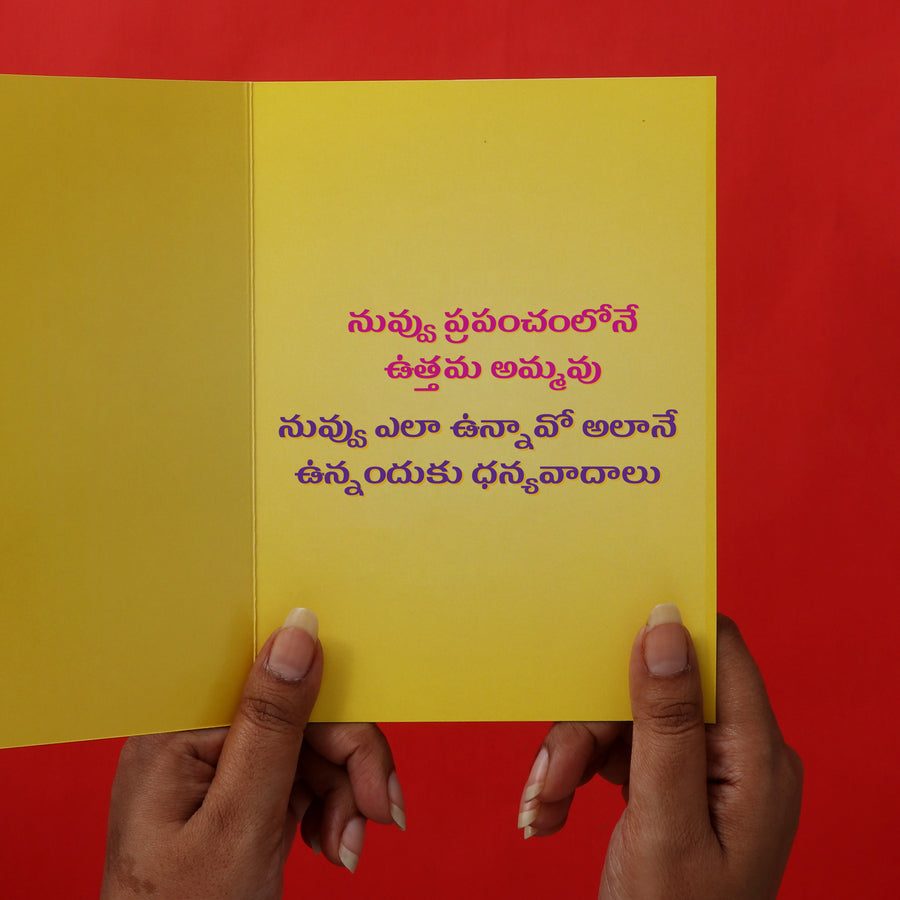 నువ్వు ప్రపంచంలోనే
ఉత్తమ అమ్మవు
నువ్వు ఎలా ఉన్నావో అలానే
ఉన్నందుకు ధన్యవాదాలు